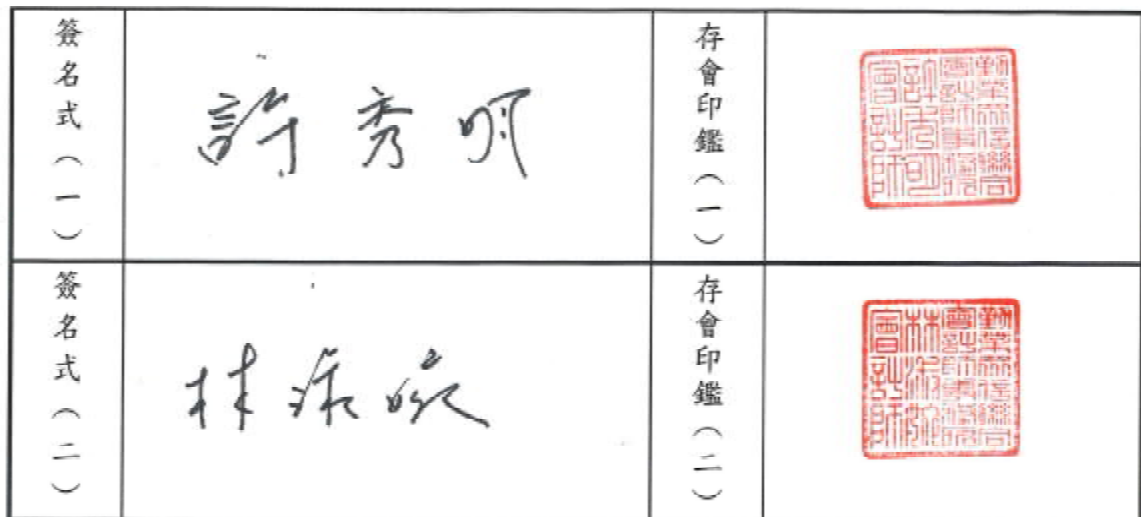 簽名式(一)
許秀明
存會印鑑(一)
勤業眾信聯合
會計師事務所
許秀明
會計師
簽名式(二)
林淑婉
存會印鑑(二)
勤業眾信聯合
會計師事務所
林淑婉
會計師